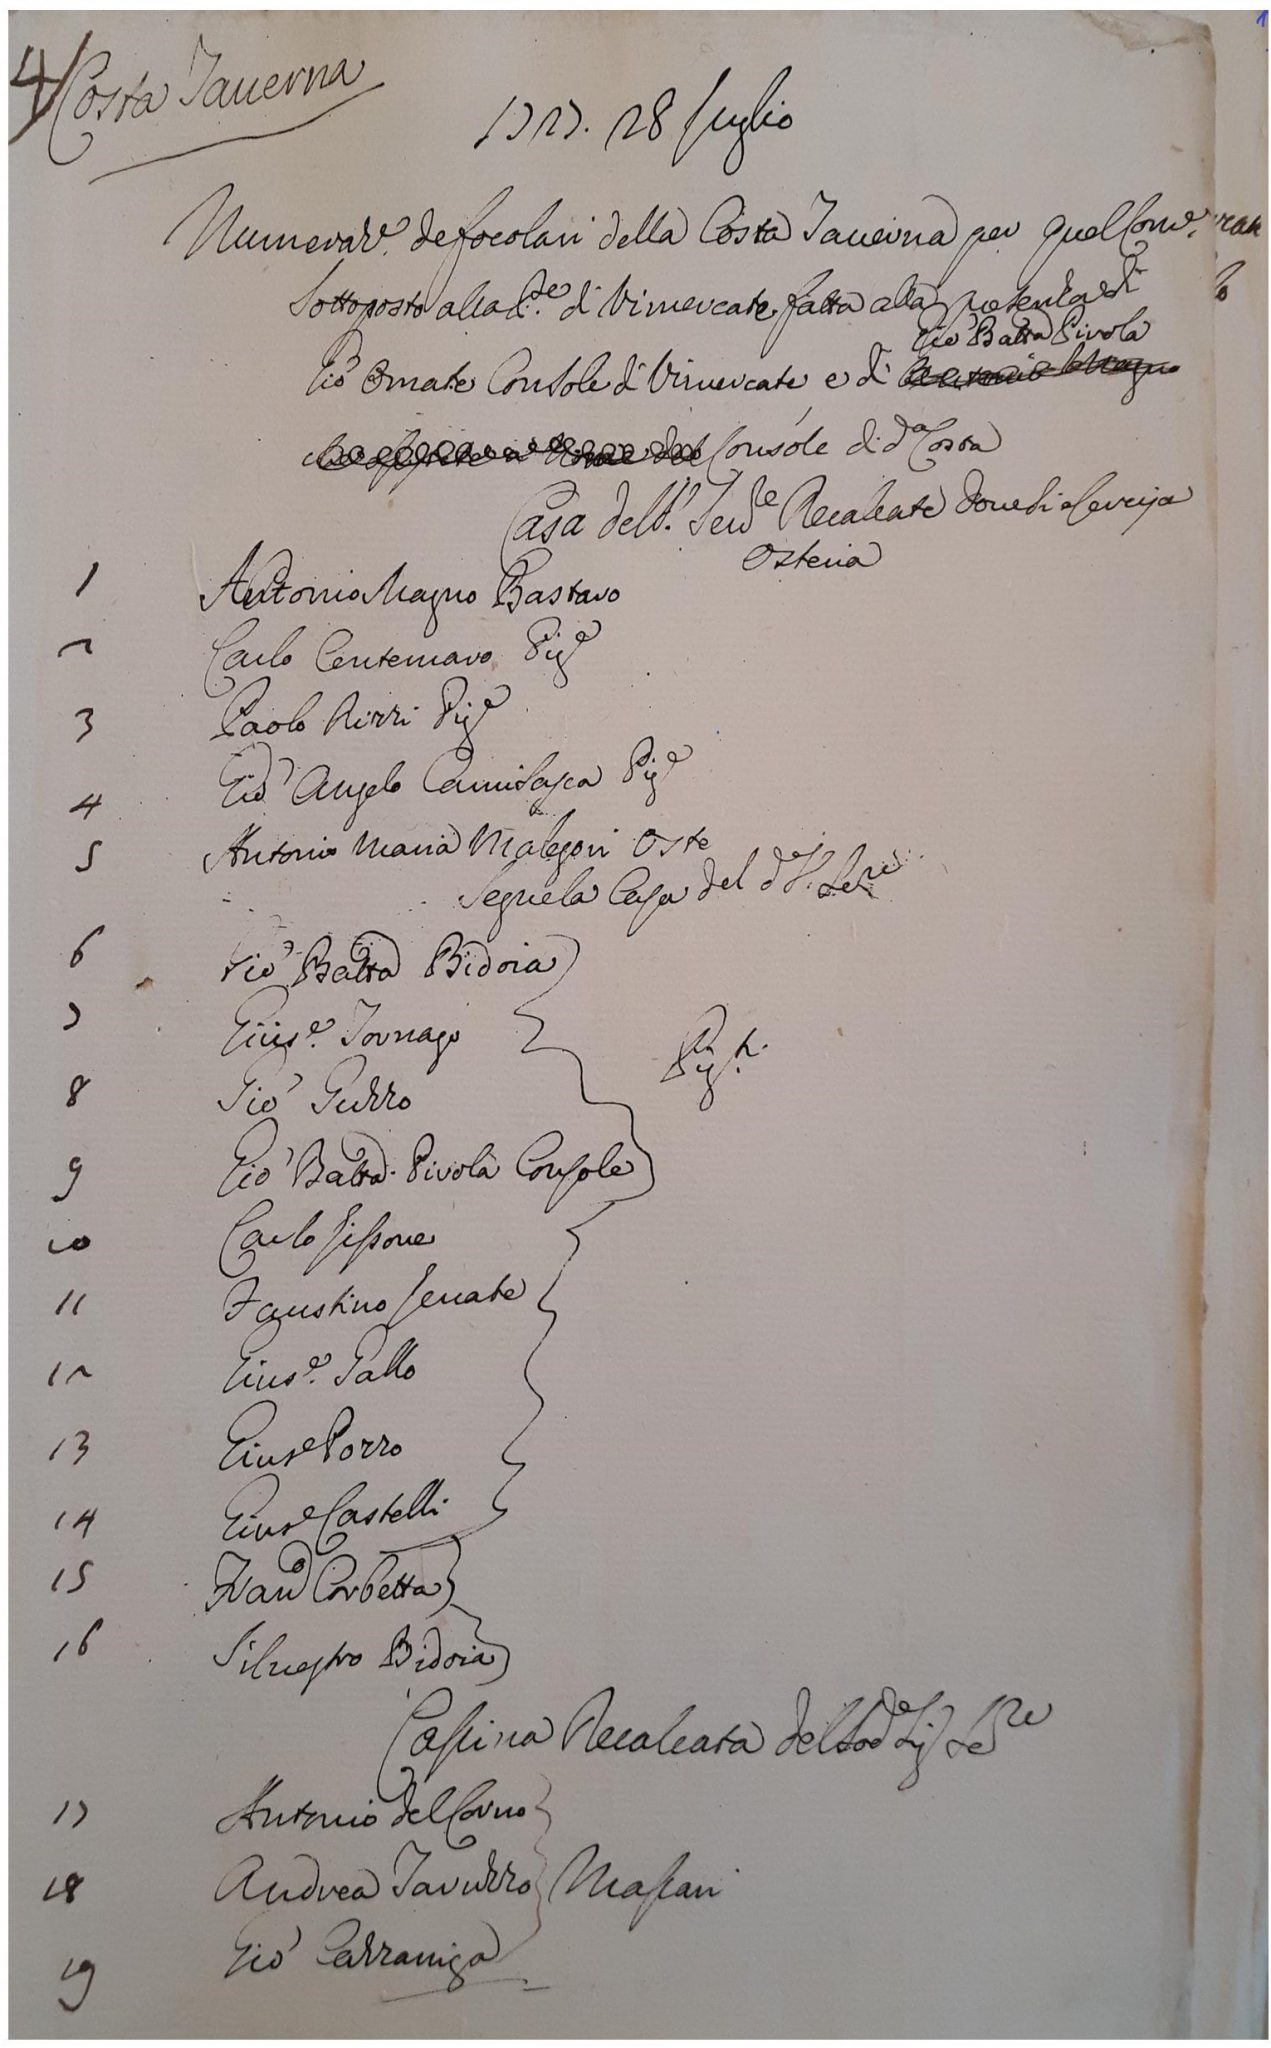 4
Costa Tauerna
1727. 28 luglio
Numeraz.e de focolari della Costa Tauerna per quel Com.e
Sottoposto alla d.e di Vimercate fatta alla presenza di
Gio' Batta Pirola
Gio Omate Console di Vimercate e di Antonio Magno
Console di d.a Costa
Casa dell' Recalcate doue si eserciza
Osteria
1 Antonio Magno Bastaro
2 Carlo Centemaro Pig.e
3 Paolo Rizzi Pig.e
4 Gio' Angelo Camisasca Pig.e
5 Antonio Maria Malegori Oste
Segue la Casa del d.o
6 Gio' Batta Bidoia
7 Gius.e Tornago
8 Gio' Guzzo
Pig.ti
9 Gio' Batta Pirola Console
10 Carlo Sissone
11 Faustino Senate
12 Gius.e Gallo
13 Gius.e Porro
14 Gius.e Castelli
15 Fran.co Corbetta
16 Siluestro Bidoia
Cassina Recalcata del Sud.e Sig.
17 Antonio del Corno
18 Andrea Tauuzzo Massari
19 Gio' Cazzaniga